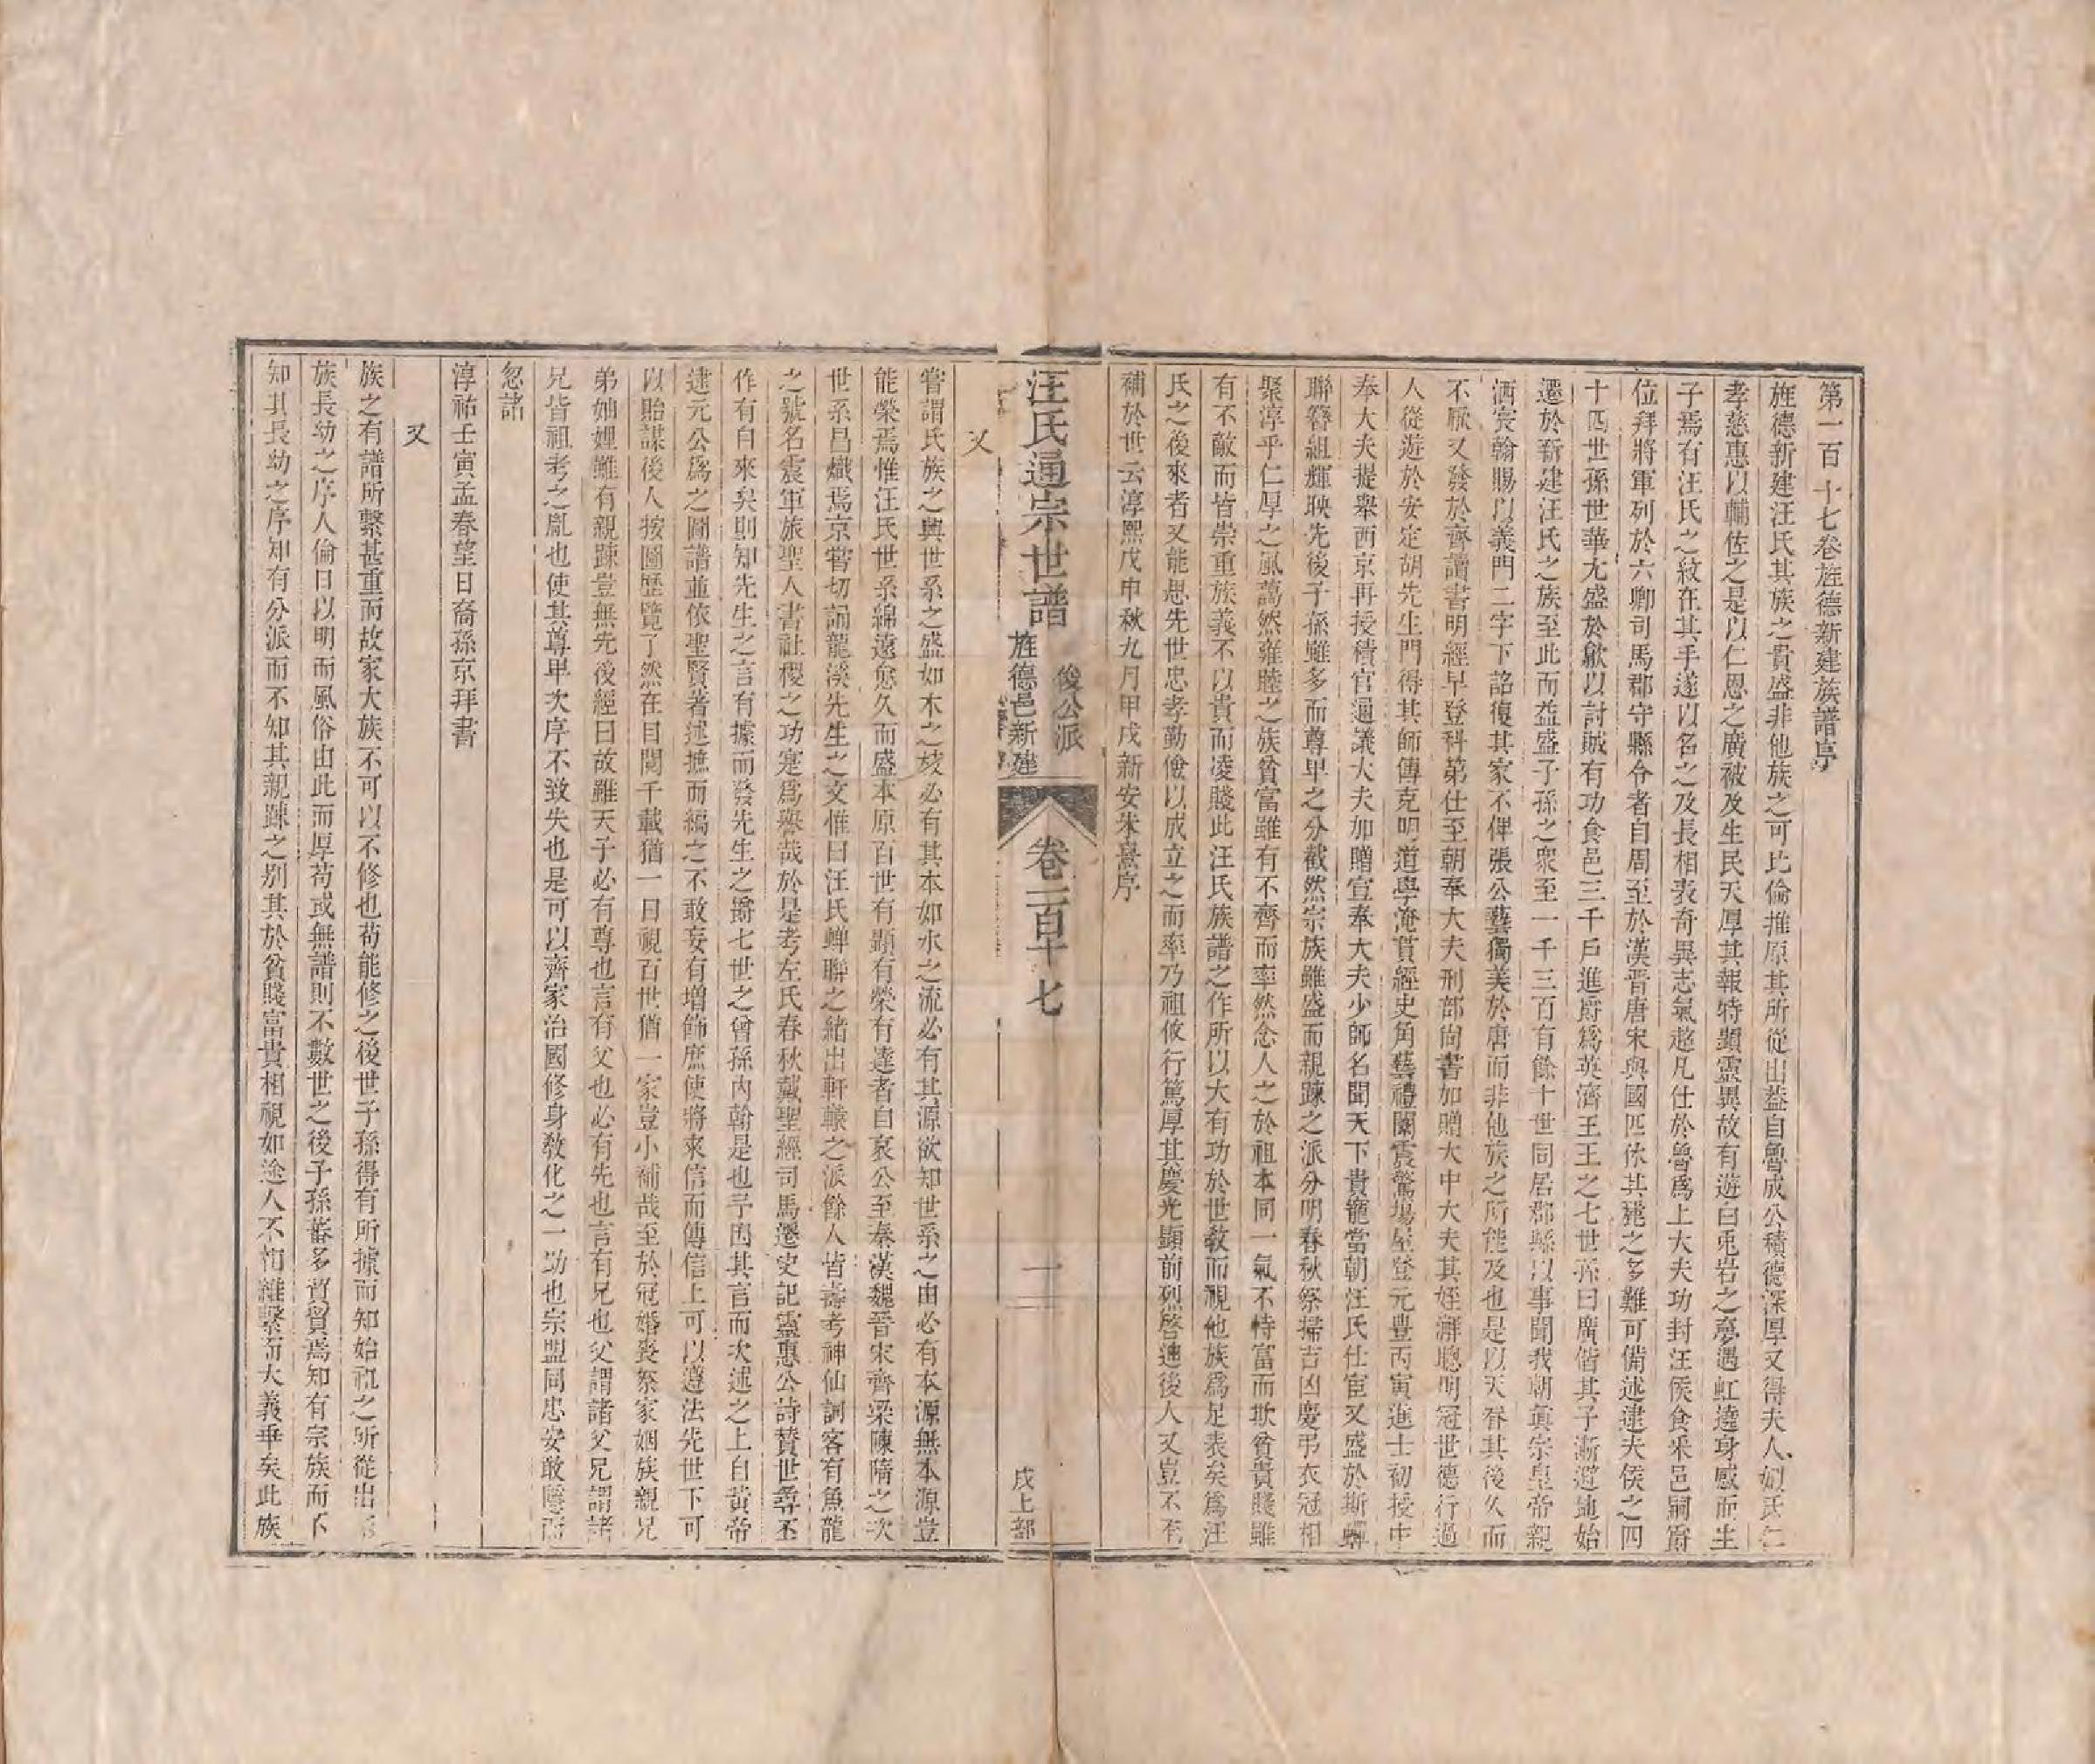 第一百十七卷旌德新建族譜序
旌德新建汪氏其族之貴盛非他族之可比倫推原其所從出葢自魯成公積德深厚又得夫人姒氏仁
孝慈惠以輔佐之是以仁恩之廣被及生民天厚其報特顯靈異故有遊白兎岩之夢遇虹遶身感而生
子焉有汪氏之紋在其手遂以名之及長相表奇異志氣趂凡仕於魯爲上大夫功封汪侯食采邑嗣爵
位拜將軍列於六卿司馬郡守縣令者自周至於漢晉唐宋與國匹休其蕤之多難可備述逮夫侯之四
十四世孫世華尤盛於歙以討賊有功食邑三千戶進爵爲英濟王王之七世孫曰廣偕其子漸遊地始
遷於新建汪氏之族至此而益盛子孫之衆至一千三百有餘十世同居郡縣以事聞我朝眞宗皇帝親
洒宸翰賜以義門二字下詔復其家不俾張公藝獨美於唐而非他族之所能及也是以天眷其後久而
不厭又發於齊讀書明經早登科第仕至朝奉大夫刑部尙書加贈大中大夫其姪澥聰明冠世德行過
人從遊於安定胡先生門得其師傳克明道學淹貫經史角藝禮闈震驚塲屋登元豊丙寅進士初授中
奉大夫提舉西京再授積官通議大夫加贈宣奉大夫少師名聞天下貴寵當朝汪氏仕宦又盛於斯蟬
聯簪組輝映先後子孫雖多而尊卑之分截然宗族雖盛而親踈之派分明春秋祭掃吉凶慶弔衣冠相
聚淳乎仁厚之風藹然雍睦之族貧富雖有不齊而率然念人之於祖本同一氣不恃富而欺貧貴賤雖
有不敵而皆崇重族義不以貴而凌賤此汪氏族譜之作所以大有功於世敎而視他族爲足表矣爲汪
氏之後來者又能思先世忠孝勤儉以成立之而率乃祖攸行篤厚其慶光顯前烈啓迪後人又豈不有
補於世云淳熙戊申秋九月甲戌新安朱熹序
汪氏通宗世譜
俊公派
旌德邑新建
卷一百十七
一
戌上部
又
嘗謂氏族之興世系之盛如木之枝必有其本如水之流必有其源欲知世系之由必有本源無本源豈
能榮焉惟汪氏世系綿遠愈久而盛本原百世有顯有榮有達者自哀公至秦漢魏晉宋齊梁陳隋之次
世系昌熾焉京嘗切誦龍溪先生之文惟曰汪氏蟬聯之緖出軒轅之派餘人皆壽考神仙詞客有魚龍
之號名震軍旅聖人書社稷之功寔爲譽哉於是考左氏春秋戴聖經司馬遷史記靈惠公詩贊世彛丕
作有自來矣則知先生之言有據而發先生之爵七世之曾孫內翰是也予因其言而次述之上自黃帝
逮元公爲之圖譜並依聖賢著述摭而緝之不敢妄有增飾庶使將來信而傳信上可以遵法先世下可
以貽謀後人按圖歷覽了然在目閱千載猶一日視百世猶一家豈小補哉至於冠婚喪祭家姻族親兄
弟妯娌雖有親踈豈無先後經曰故雖天子必有尊也言有父也必有先也言有兄也父謂諸父兄謂諸
兄皆祖考之胤也使其尊卑次序不致失也是可以齊家治國修身敎化之一助也宗盟同忠安敢隱而
忽諸
淳祐壬寅孟春望日裔孫京拜書
又
族之有譜所繫甚重而故家大族不可以不修也苟能修之後世子孫得有所據而知始祖之所從出
族長幼之序人倫日以明而風俗由此而厚苟或無譜則不數世之後子孫蕃多貿貿焉知有宗族而不
知其長幼之序知有分派而不知其親踈之别其於貧賤富貴相視如途人不相維繫而大義乖矣此族